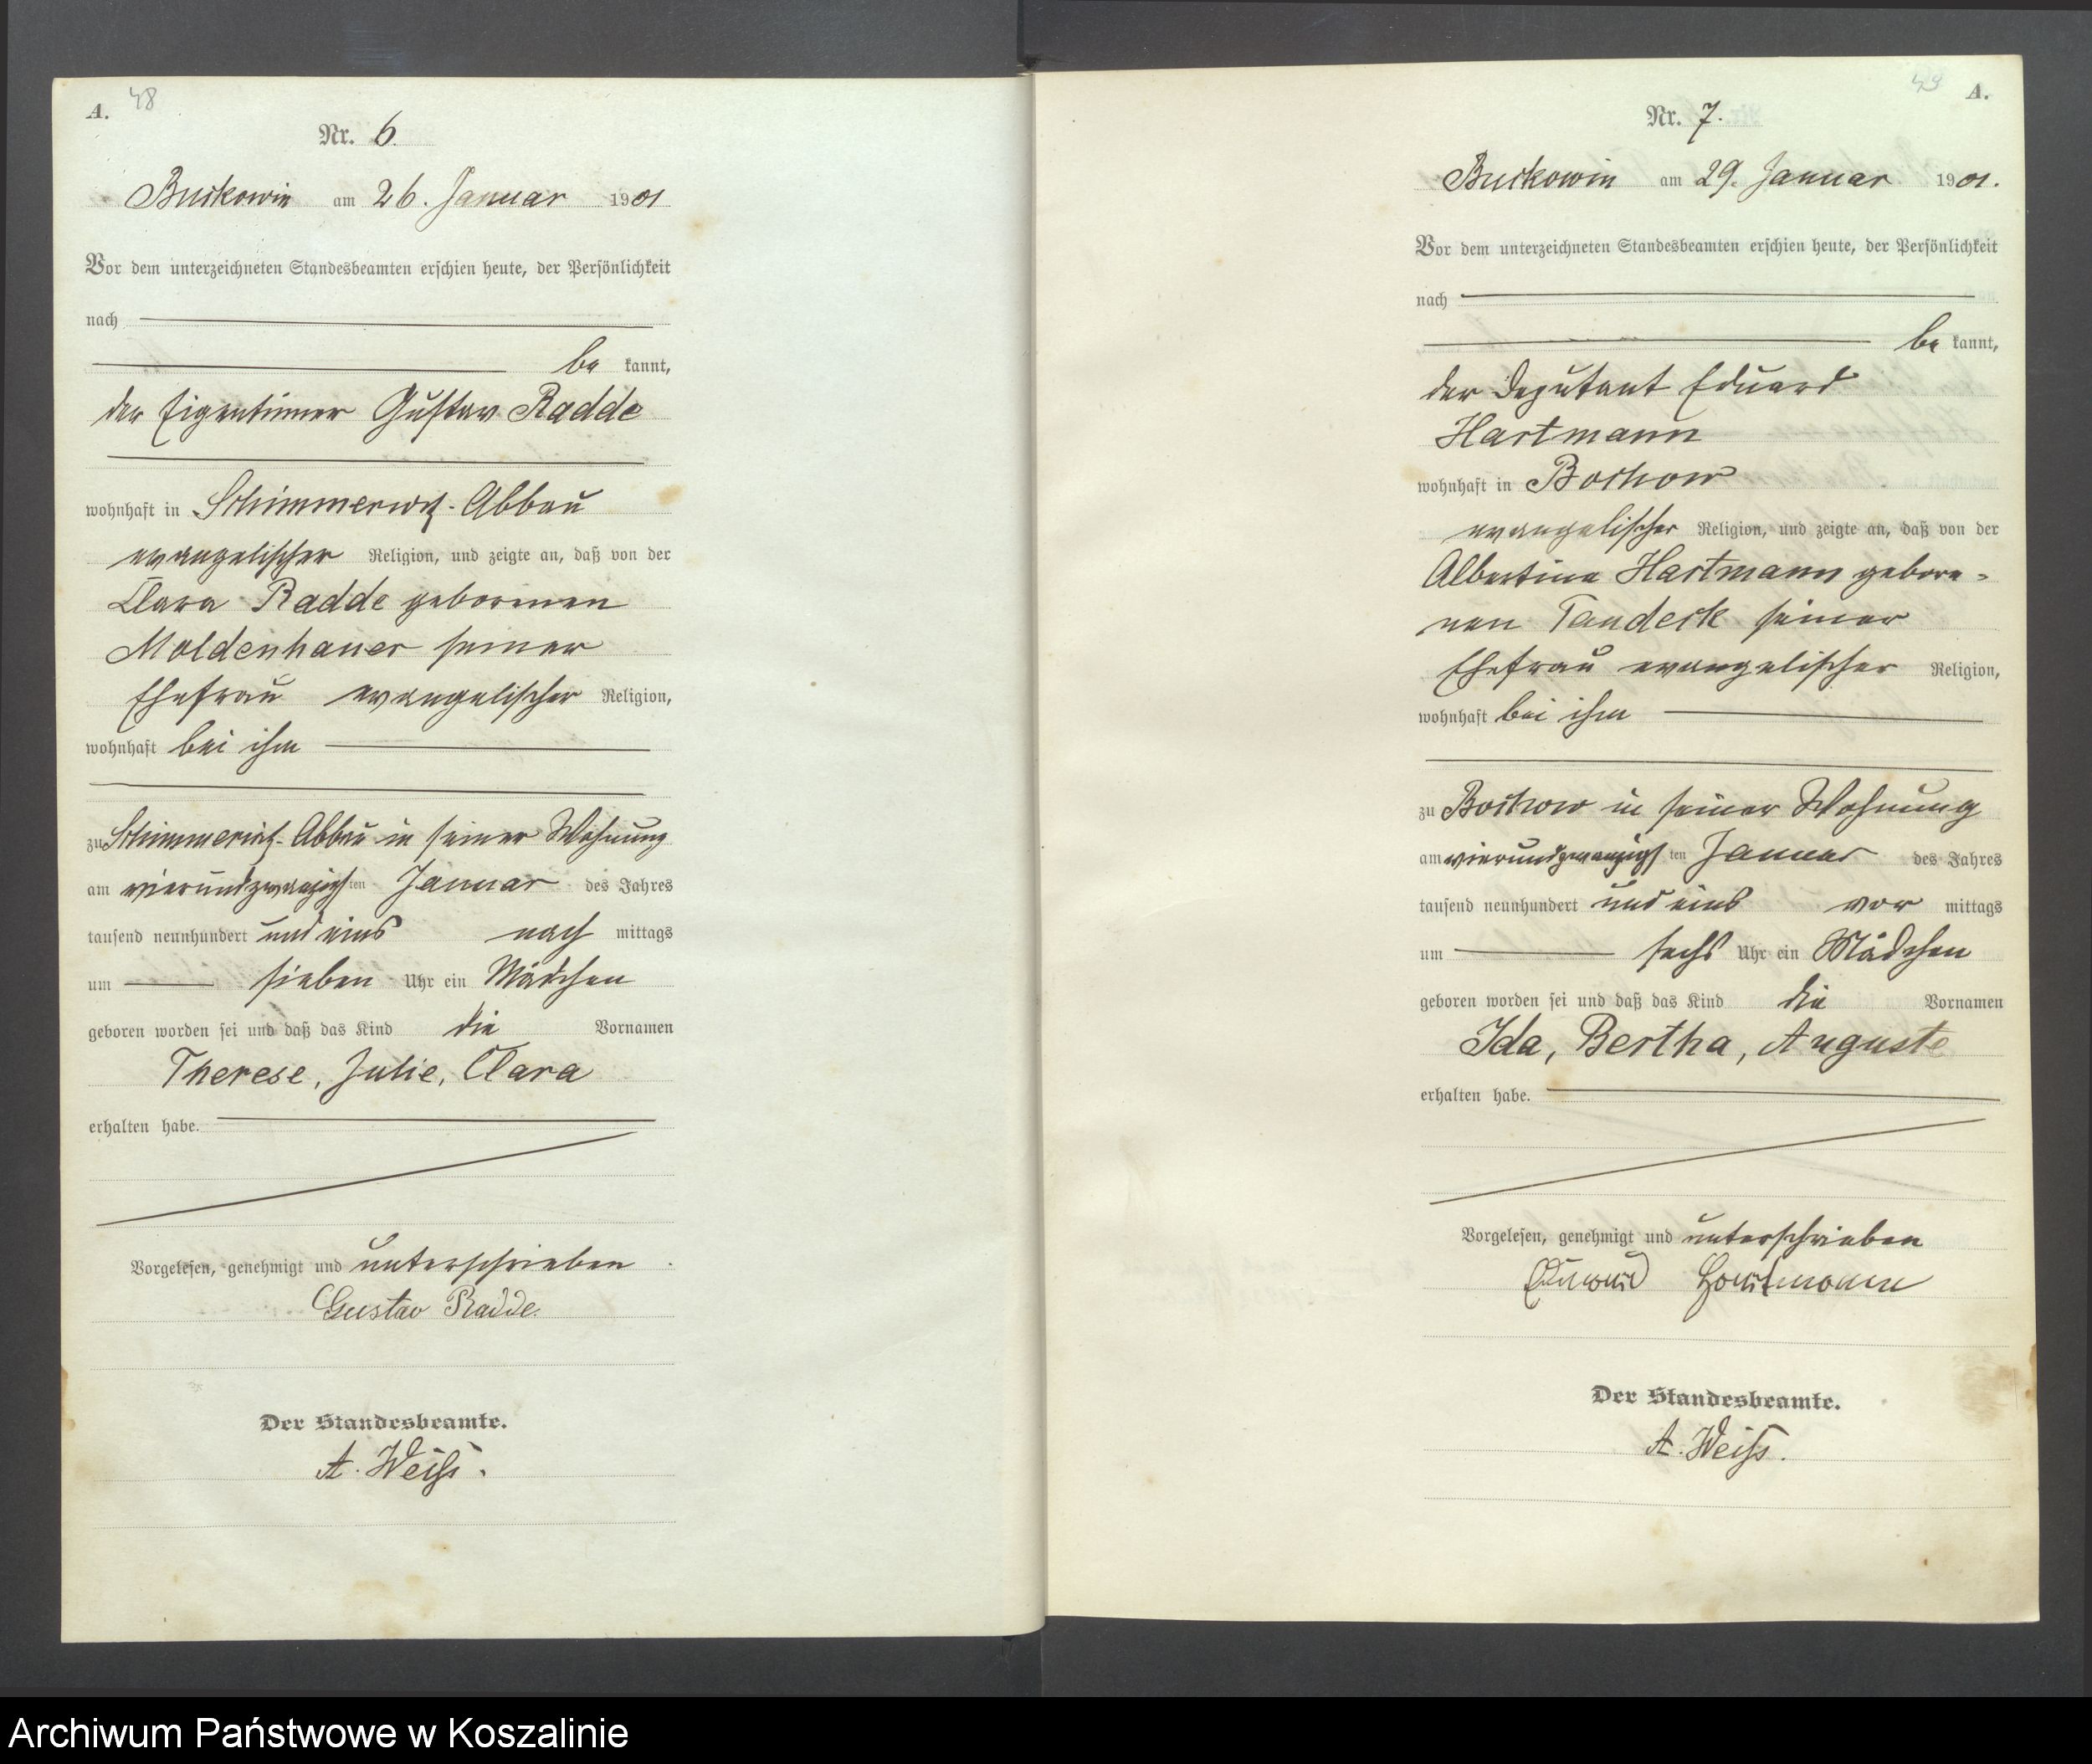 A. 48
Nr. 6.
Buckowin am 26. Januar 1901
Vor dem unterzeichneten Standesbeamten erschien heute, der Persönlichkeit
nach
be kannt,
der Eigentümer Gustav Radde
wohnhaft in Schimmerwitz-Abbau
evangelischer Religion, und zeigte an, daß von der
Clara Radde geborenen
Moldenhauer seiner
Ehefrau evangelischer Religion,
wohnhaft bei ihm
zu Schimmerwitz-Abbau in seiner Wohnung
am vierundzwanzigsten Januar des Jahres
tausend neunhundert und eins nach mittags
um sieben Uhr ein Mädchen
geboren worden sei und daß das Kind die Vornamen
Therese, Julie, Clara
erhalten habe.
Vorgelesen, genehmigt und unterschrieben
Gustav Radde.
Der Standesbeamte.
A. Weiß.
49 A.
Nr. 7.
Buckowin am 29. Januar 1901.
Vor dem unterzeichneten Standesbeamten erschien heute, der Persönlichkeit
nach
be kannt,
der Deputant Eduard
Hartmann
wohnhaft in Bochow
evangelischer Religion, und zeigte an, daß von der
Albertine Hartmann gebore-
nen Tandeck seiner
Ehefrau evangelischer Religion,
wohnhaft bei ihm
zu Bochow in seiner Wohnung
am vierundzwanzigsten Januar des Jahres
tausend neunhundert und eins vor mittags
um sechs Uhr ein Mädchen
geboren worden sei und daß das Kind die Vornamen
Ida, Bertha, Auguste
erhalten habe.
Vorgelesen, genehmigt und unterschrieben
Eduard Hartmann
Der Standesbeamte.
A. Weiß.
Archiwum Państwowe w Koszalinie